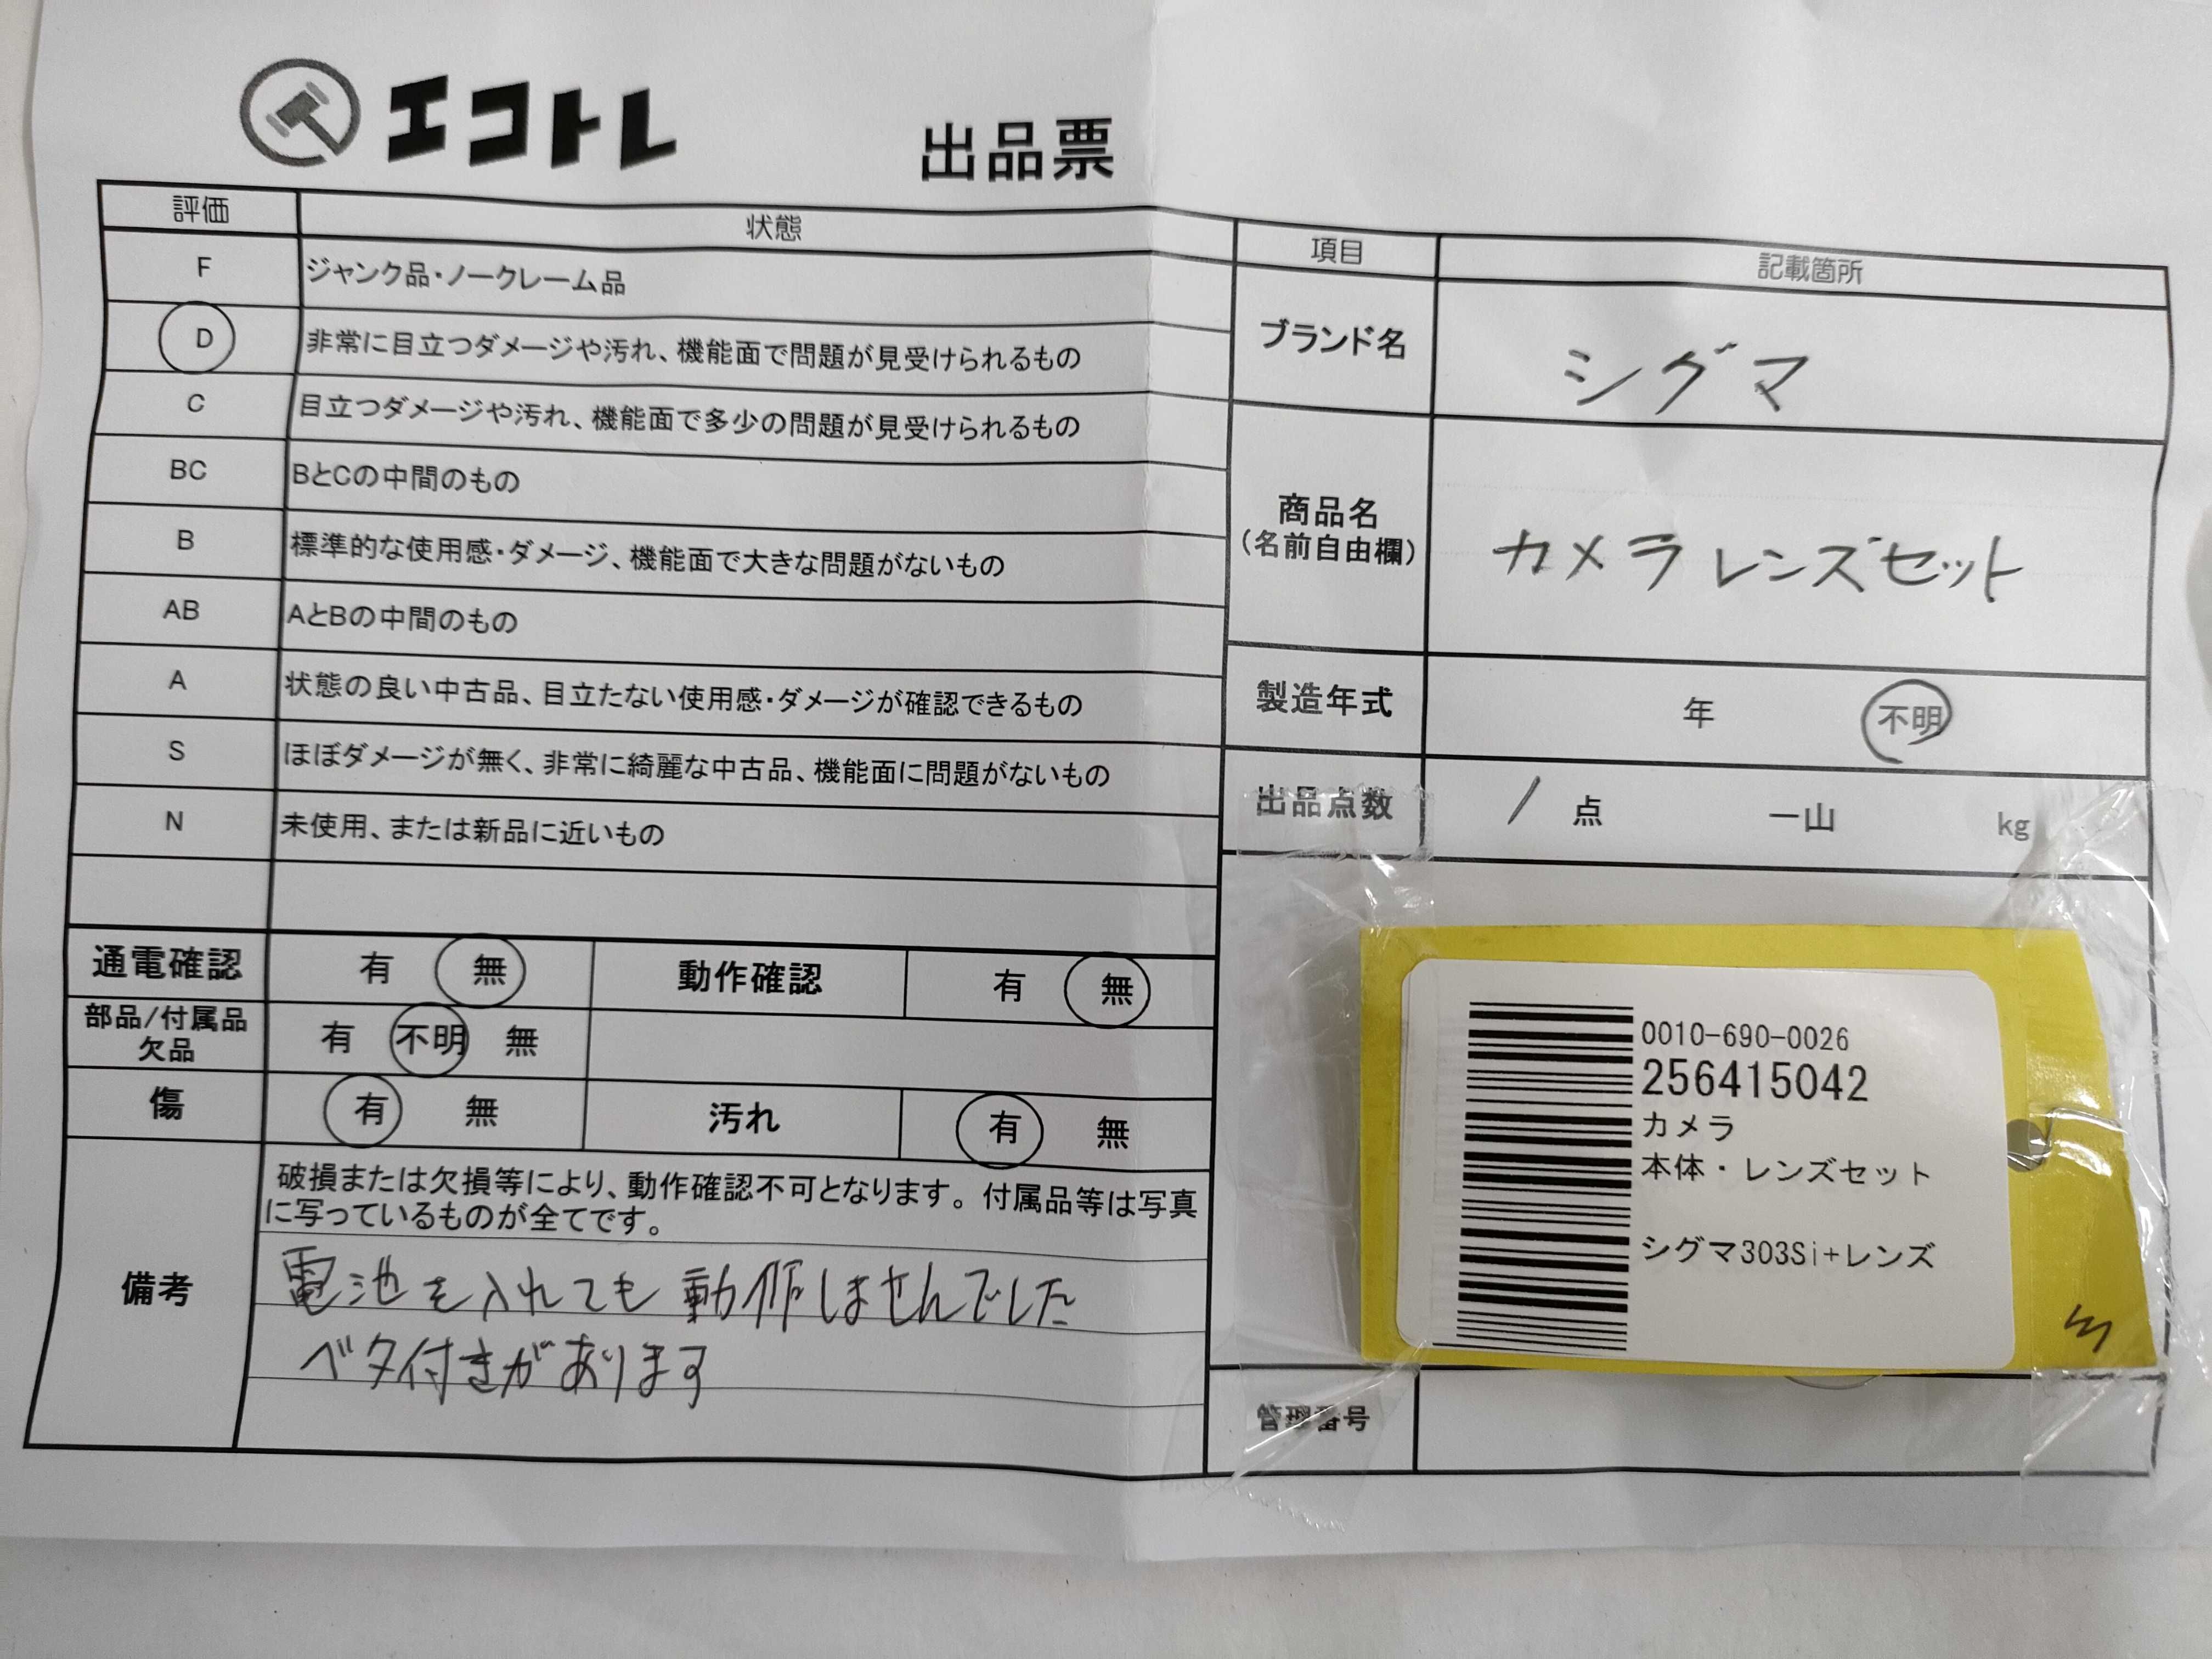 エコトレ
出品票
評価 状態
F ジャンク品・ノークレーム品
D 非常に目立つダメージや汚れ、機能面で問題が見受けられるもの
C 目立つダメージや汚れ、機能面で多少の問題が見受けられるもの
BC BとCの中間のもの
B 標準的な使用感・ダメージ、機能面で大きな問題がないもの
AB AとBの中間のもの
A 状態の良い中古品、目立たない使用感・ダメージが確認できるもの
S ほぼダメージが無く、非常に綺麗な中古品、機能面に問題がないもの
N 未使用、または新品に近いもの
通電確認 有 無 動作確認 有 無
部品/付属品
欠品 有 不明 無
傷 有 無 汚れ 有 無
備考
破損または欠損等により、動作確認不可となります。付属品等は写真
に写っているものが全てです。
電池を入れても動作しませんでした
ベタ付きがあります
項目 記載箇所
ブランド名 シグマ
商品名
(名前自由欄)
カメラレンズセット
製造年式 年 不明
出品点数 / 点 一山 kg
0010-690-0026
256415042
カメラ
本体・レンズセット
シグマ303Si+レンズ
管理番号